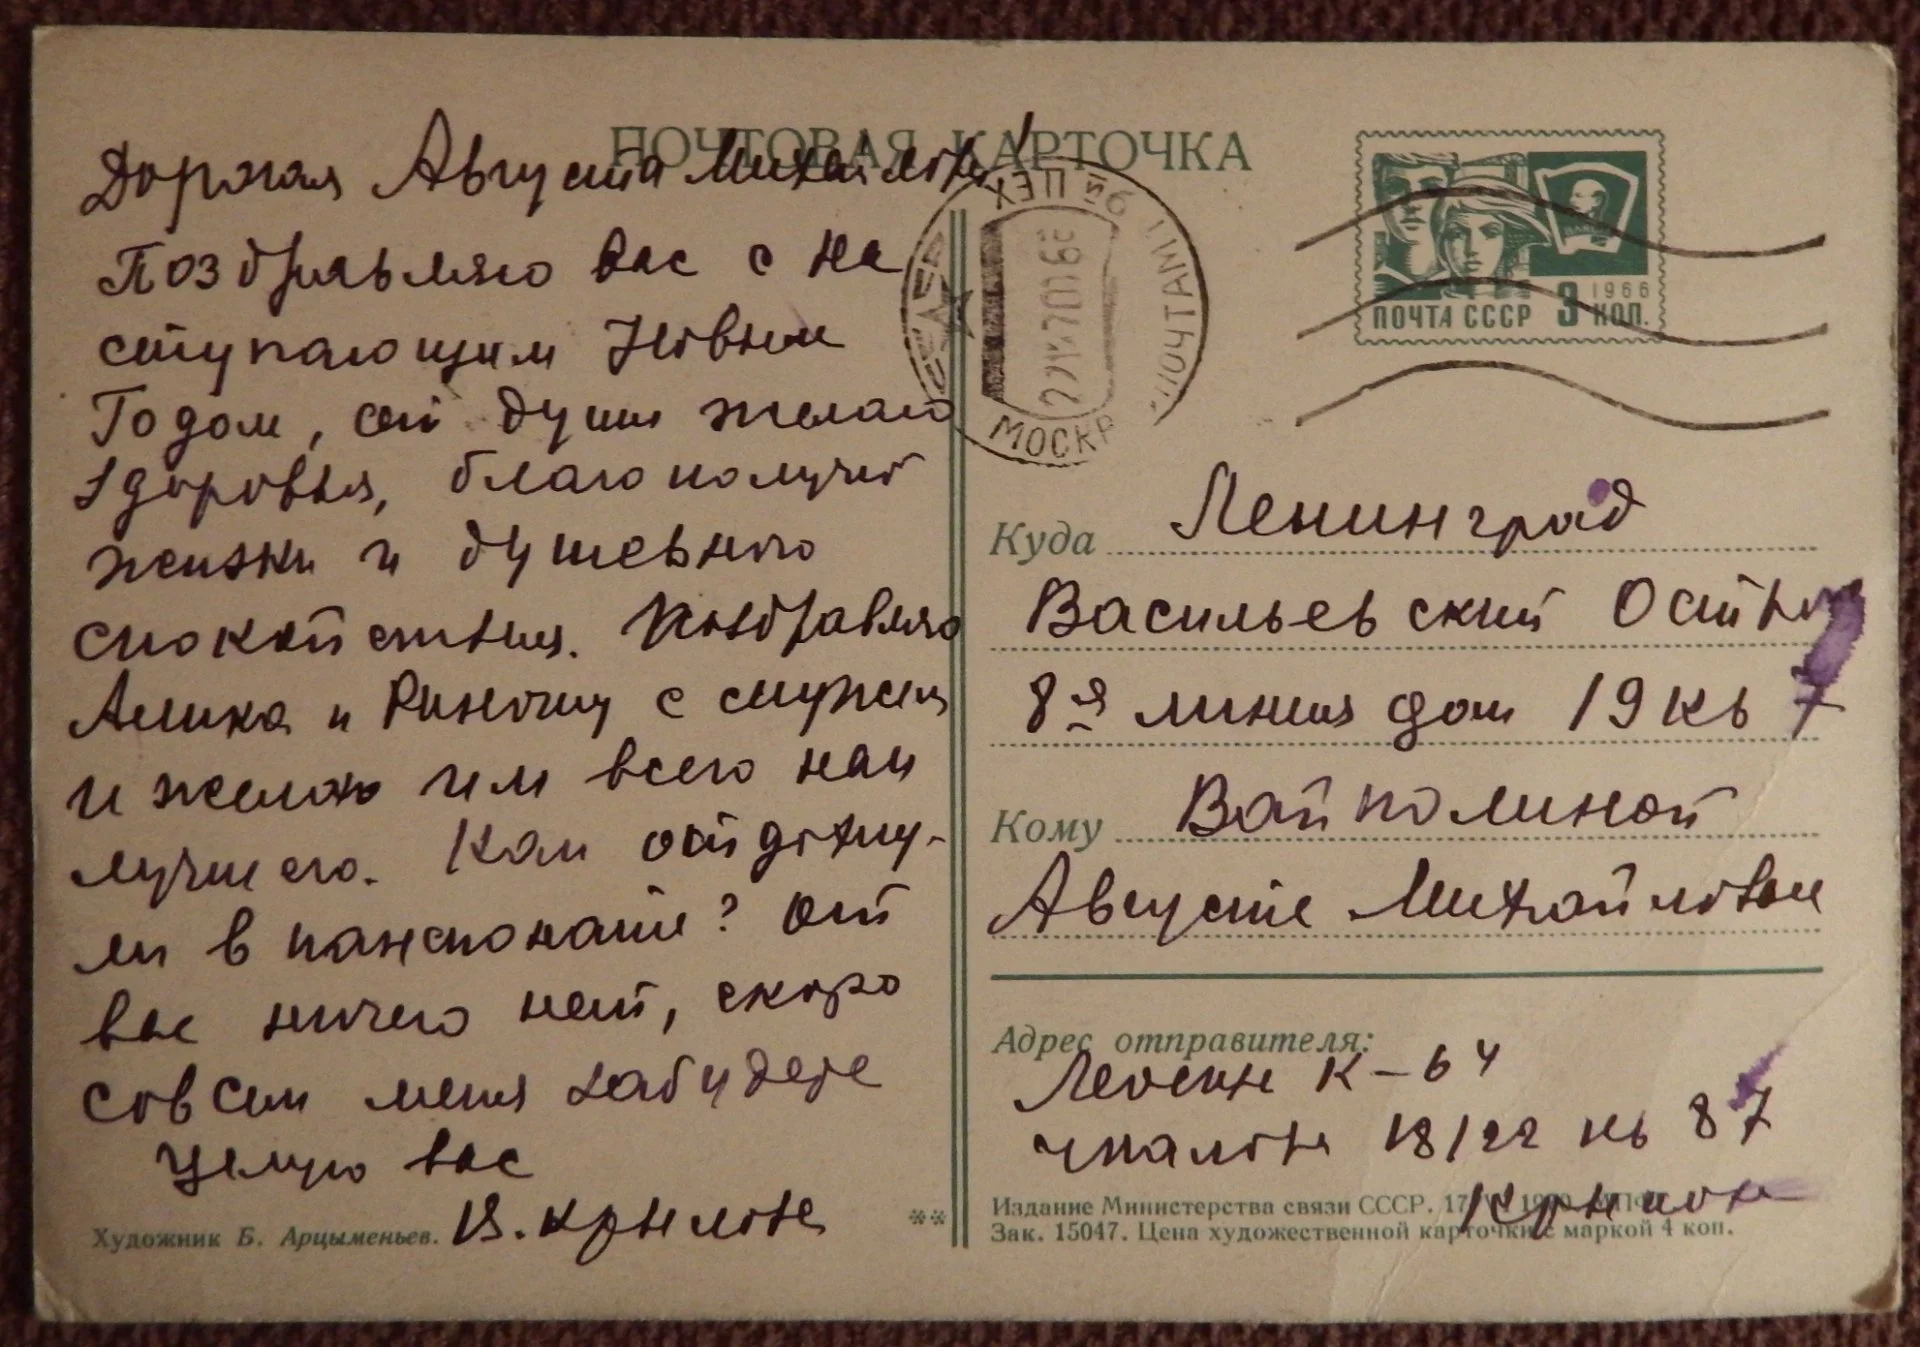 ПОЧТОВАЯ КАРТОЧКА
Дорогая Августа Михайловна!
Поздравляю вас с на
ступающим Новым
Годом, от души желаю
здоровья, благополучной
жизни и душевного
спокойствия. Поздравляю
Алика и Риночку с мужем
и желаю им всего наи
лучшего. Как отдохну-
ли в пансионате? От
вас ничего нет, скоро
совсем меня забудете
Целую вас
В. Крылова
Художник Б. Арцыменьев.
**
ПОЧТАМТ
ЦЕХ №
МОСКВА
ПОЧТА СССР 3 КОП.
1966
Куда Ленинград
Васильевский Остров
8я линия дом 19 кв 7
Кому Вайполиной
Августе Михайловне
Адрес отправителя:
К-64
Чкалова 18/22 кв 87
Крылова
Издание Министерства связи СССР. 17
Зак. 15047. Цена художественной карточки с маркой 4 коп.